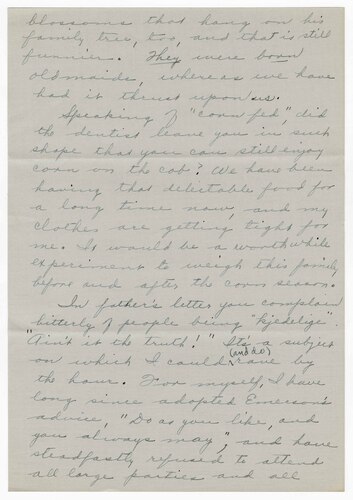 blossoms that hang on his
family tree, too, and that is still
funnier. They were born
old maids, whereas we have
had it thrust upon us.
Speaking of "corn fed", did
the dentist leave you in such
shape that you can still enjoy
corn on the cob? We have been
having that delectable food for
a long time now, and my
clothes are getting tight for
me. It would be a worth while
experiment to weigh this family
before and after the corn season.
In father's letter you complain
bitterly of people being "kjedelige".
"Ain't it the truth!" It's a subject
on which I could (and do) rave by
the hour. For myself, I have
long since adopted Emerson's
advice, "Do as you like, and
you always may", and have
steadfastly refused to attend
all large parties and all